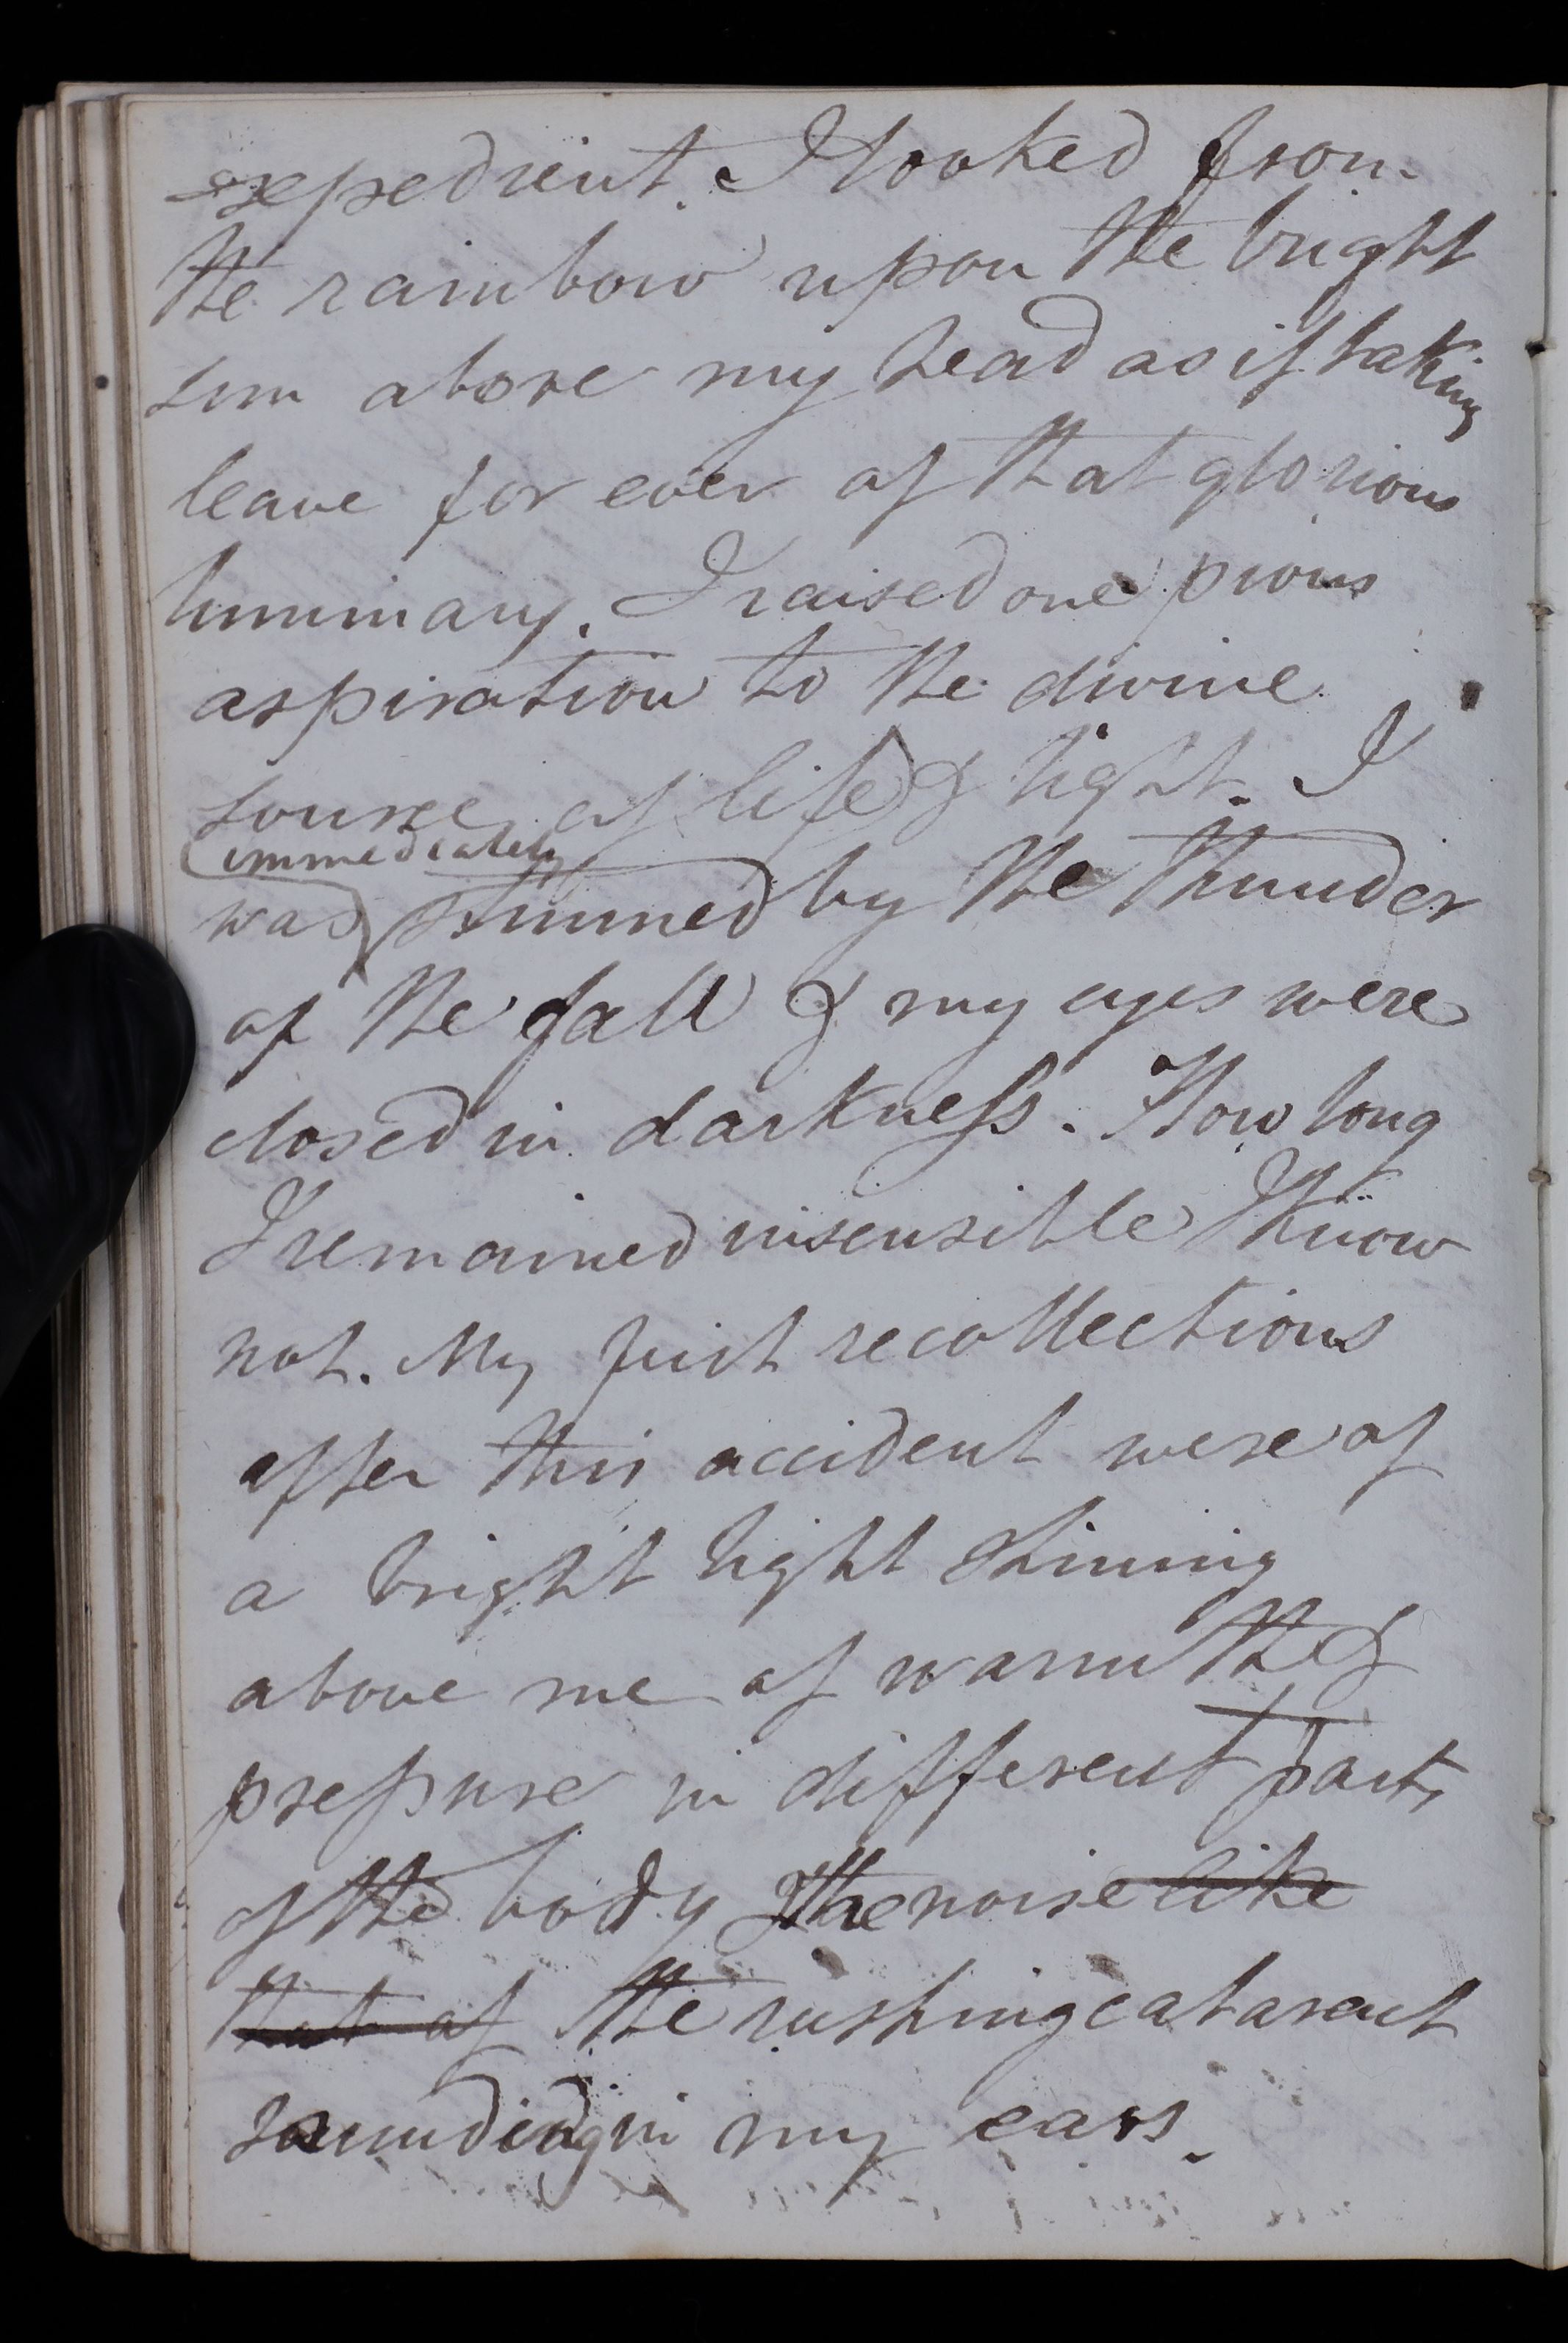 expedient. I looked from
the rainbow upon the bright
sun above my head as if taking
leave for ever of that glorious
luminary. I raised one pious
aspiration to the divine
source of life & light. I
immediately
was stunned by the thunder
of the fall & my eyes were
closed in darkness. How long
I remained insensible I know
not. My first recollections
after this accident were of
a bright light shining
above me of warmth &
pressure in different parts
of the body The noise like
that of the rushing catarect
sounding in my ears.